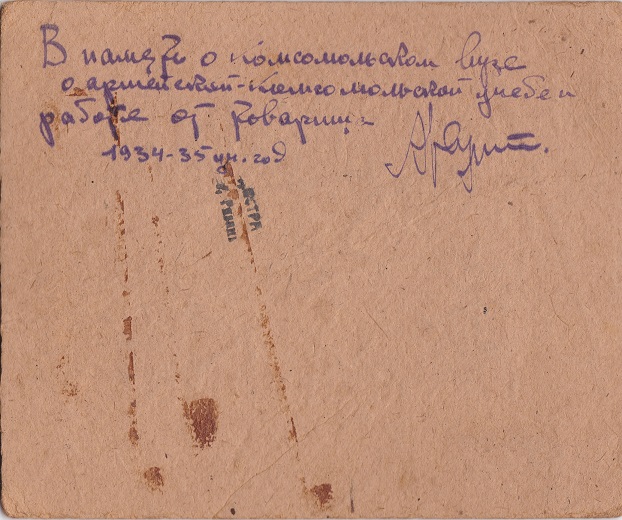 В память о комсомольском вузе
о армейской-комсомольской учебе и
работе от товарищ-
1934-35 уч. год